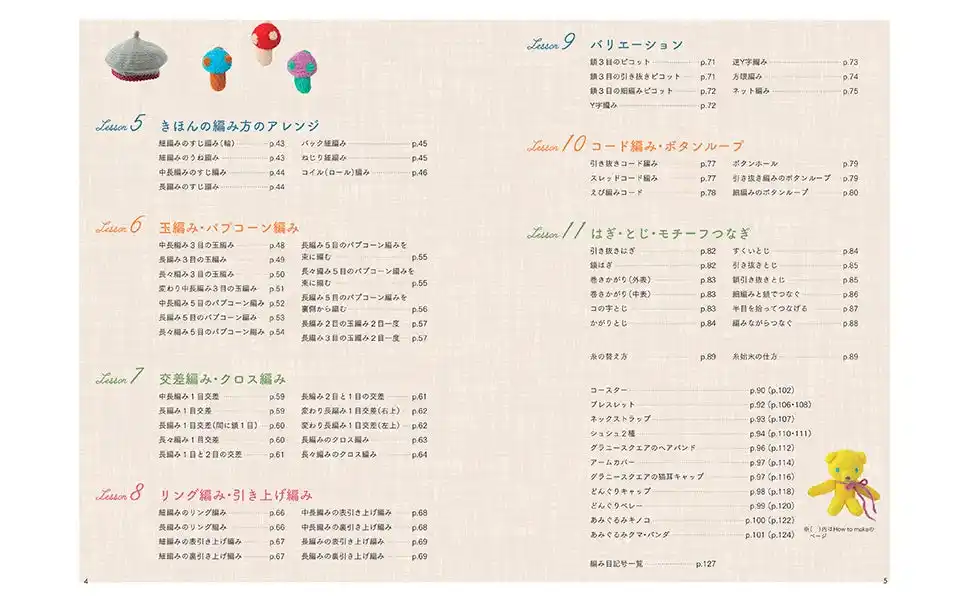 Lesson 5 きほんの編み方のアレンジ
細編みのすじ編み(輪) p.43
細編みのうね編み p.43
中長編みのすじ編み p.44
長編みのすじ編み p.44
バック細編み p.45
ねじり細編み p.45
コイル(ロール)編み p.46
Lesson 6 玉編み・パプコーン編み
中長編み3目の玉編み p.48
長編み3目の玉編み p.49
長々編み3目の玉編み p.50
変わり中長編み3目の玉編み p.51
中長編み5目のパプコーン編み p.52
長編み5目のパプコーン編み p.53
長々編み5目のパプコーン編み p.54
長編み5目のパプコーン編みを
束に編む p.55
長々編み5目のパプコーン編みを
束に編む p.55
長編み5目のパプコーン編みを
裏側から編む p.56
長編み2目の玉編み2目一度 p.57
長編み3目の玉編み2目一度 p.57
Lesson 7 交差編み・クロス編み
中長編み1目交差 p.59
長編み1目交差 p.59
長編み1目交差(間に鎖1目) p.60
長々編み1目交差 p.60
長編み1目と2目の交差 p.61
長編み2目と1目の交差 p.61
変わり長編み1目交差(右上) p.62
変わり長編み1目交差(左上) p.62
長編みのクロス編み p.63
長々編みのクロス編み p.64
Lesson 8 リング編み・引き上げ編み
細編みのリング編み p.66
長編みのリング編み p.66
細編みの表引き上げ編み p.67
細編みの裏引き上げ編み p.67
中長編みの表引き上げ編み p.68
中長編みの裏引き上げ編み p.68
長編みの表引き上げ編み p.69
長編みの裏引き上げ編み p.69
4
Lesson 9 バリエーション
鎖3目のピコット p.71
鎖3目の引き抜きピコット p.71
鎖3目の細編みピコット p.72
Y字編み p.72
逆Y字編み p.73
方眼編み p.74
ネット編み p.75
Lesson 10 コード編み・ボタンループ
引き抜きコード編み p.77
スレッドコード編み p.77
えび編みコード p.78
ボタンホール p.79
引き抜き編みのボタンループ p.79
細編みのボタンループ p.80
Lesson 11 はぎ・とじ・モチーフつなぎ
引き抜きはぎ p.82
鎖はぎ p.82
巻きかがり(外表) p.83
巻きかがり(中表) p.83
コの字とじ p.83
かがりとじ p.84
すくいとじ p.84
引き抜きとじ p.85
鎖引き抜きとじ p.85
細編みと鎖でつなぐ p.86
半目を拾ってつなげる p.87
編みながらつなぐ p.88
糸の替え方 p.89
糸始末の仕方 p.89
コースター p.90 (p.102)
ブレスレット p.92 (p.106・108)
ネックストラップ p.93 (p.107)
シュシュ2種 p.94 (p.110・111)
グラニースクエアのヘアバンド p.96 (p.112)
アームカバー p.97 (p.114)
グラニースクエアの猫耳キャップ p.97 (p.116)
どんぐりキャップ p.98 (p.118)
どんぐりベレー p.99 (p.120)
あみぐるみキノコ p.100 (p.122)
あみぐるみクマ・パンダ p.101 (p.124)
編み目記号一覧 p.127
※( )内はHow to makeの
ページ
5